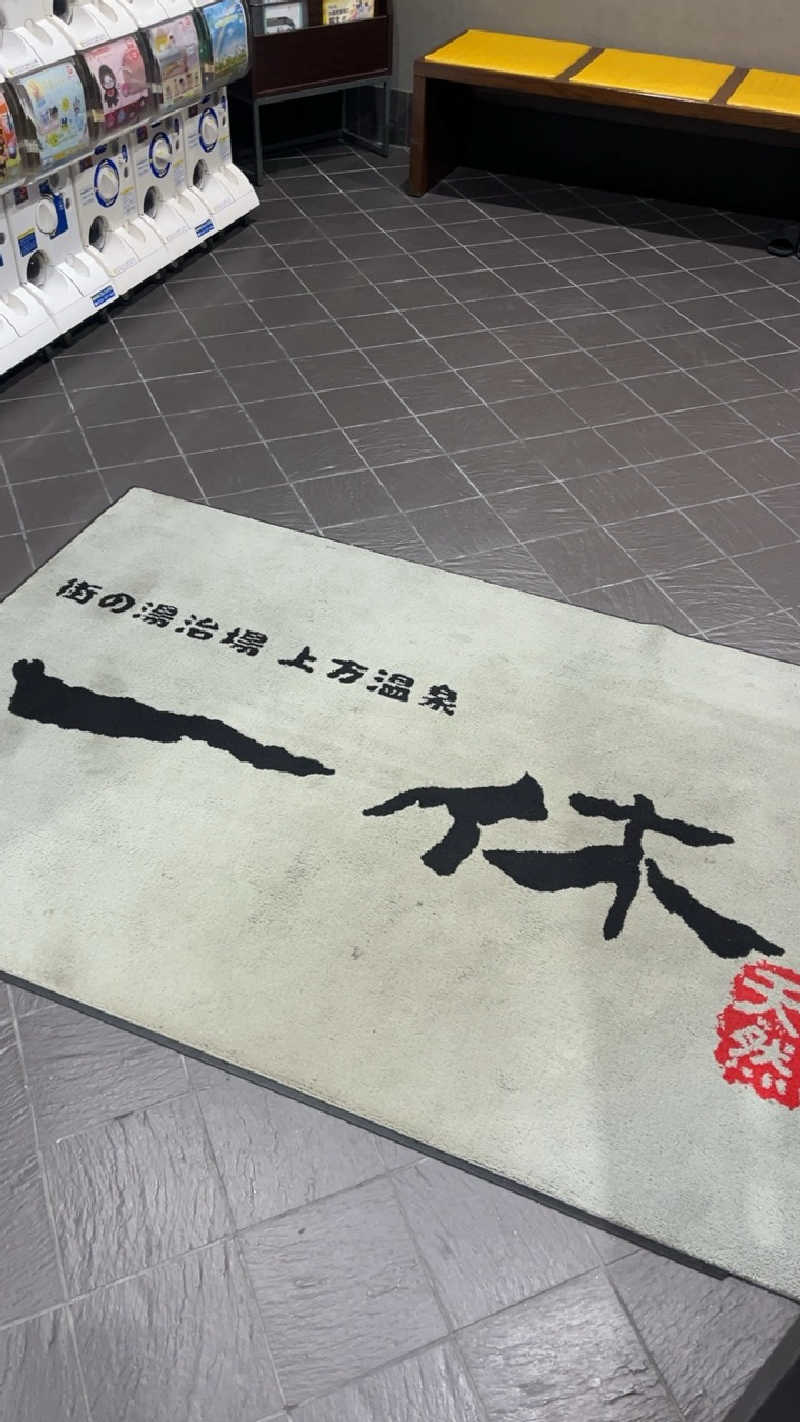 街の湯治場 上方温泉
一休
天然